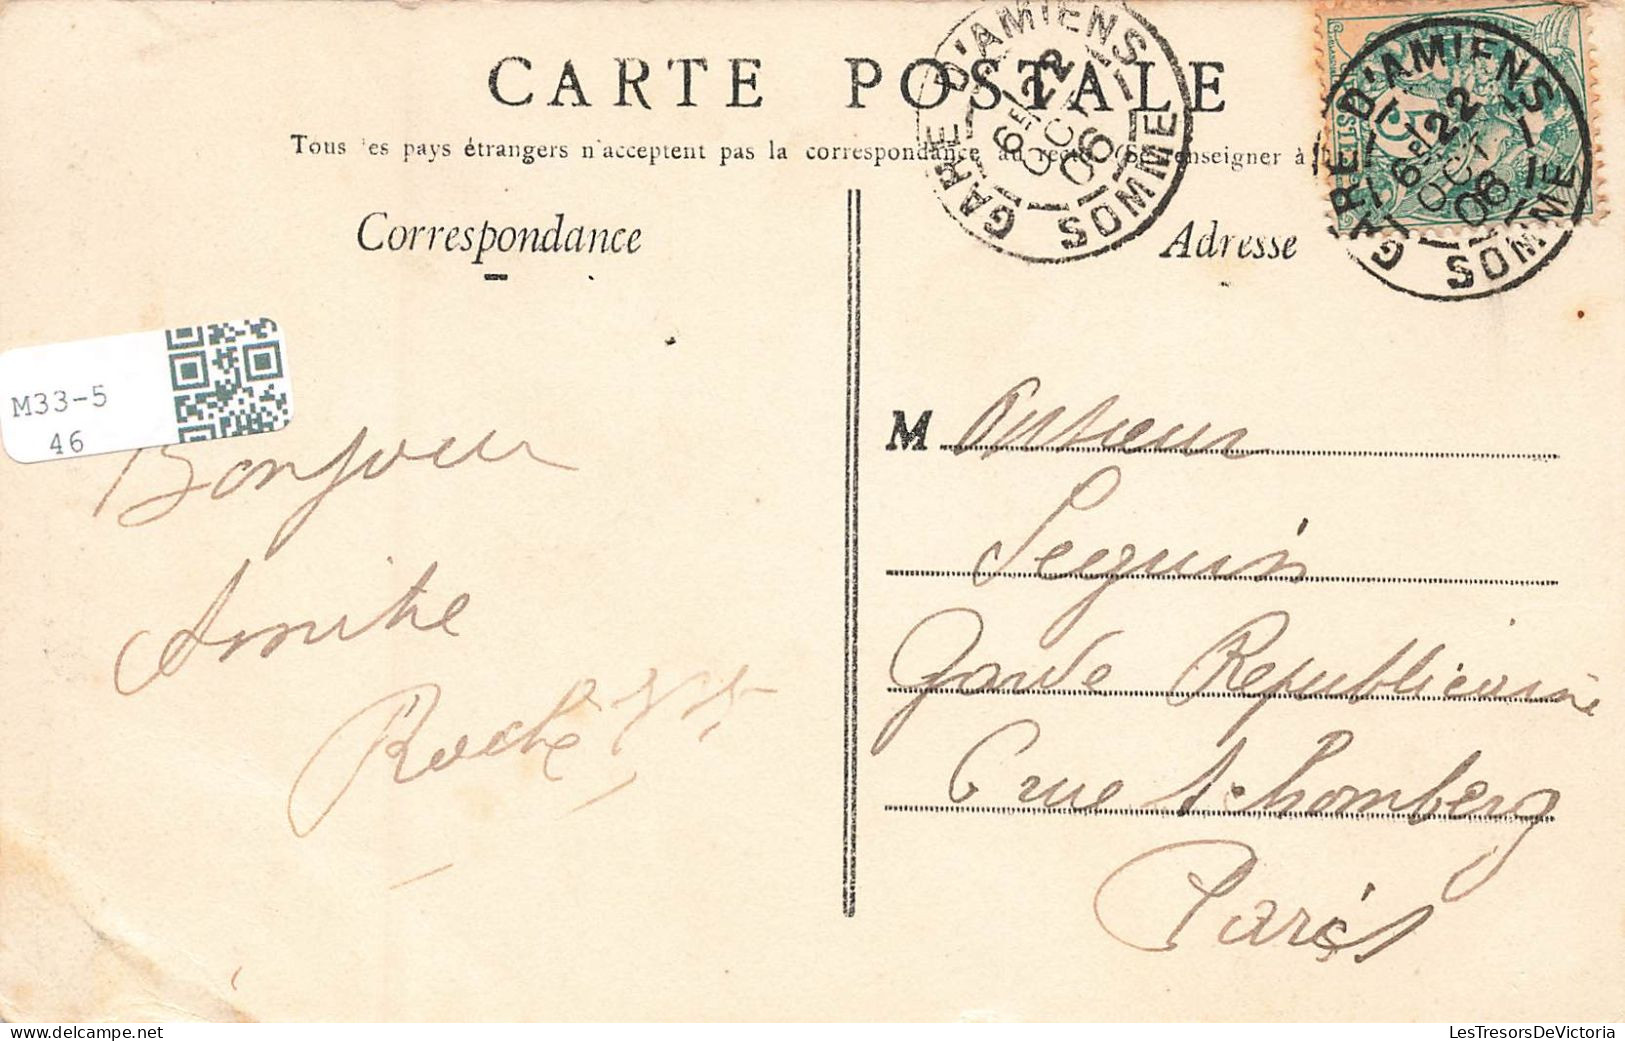 CARTE POSTALE
Tous les pays étrangers n'acceptent pas la correspondance au recto. (Se renseigner à la
Correspondance
Adresse
GARE D'AMIENS
6E 22
OCT
06
SOMME
GARE D'AMIENS
6E 22
OCT
06
SOMME
M33-5
46
Bonjour
Amitié
Roche
M onsieur
Seguin
Garde Republicaine
6 rue Schomberg
Paris
LesTresorsDeVictoria